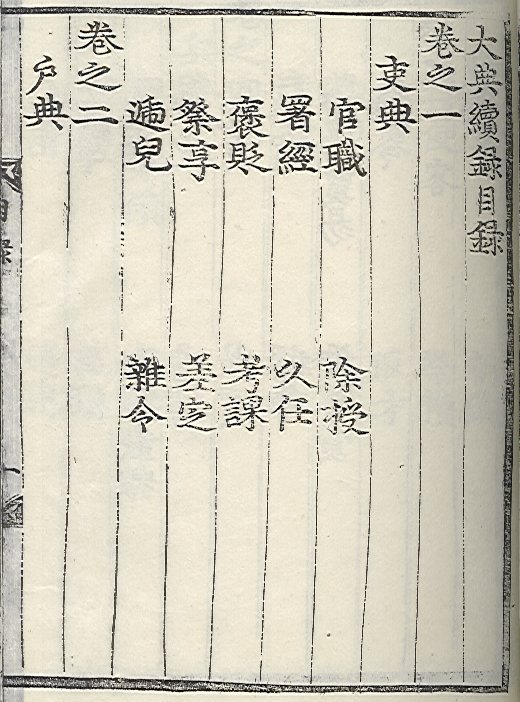 大典續錄目錄
卷之一
吏典
官職 除授
署經 久任
褒貶 考課
祭享 差定
遞兒 雜令
卷之二
戶典
目錄
一